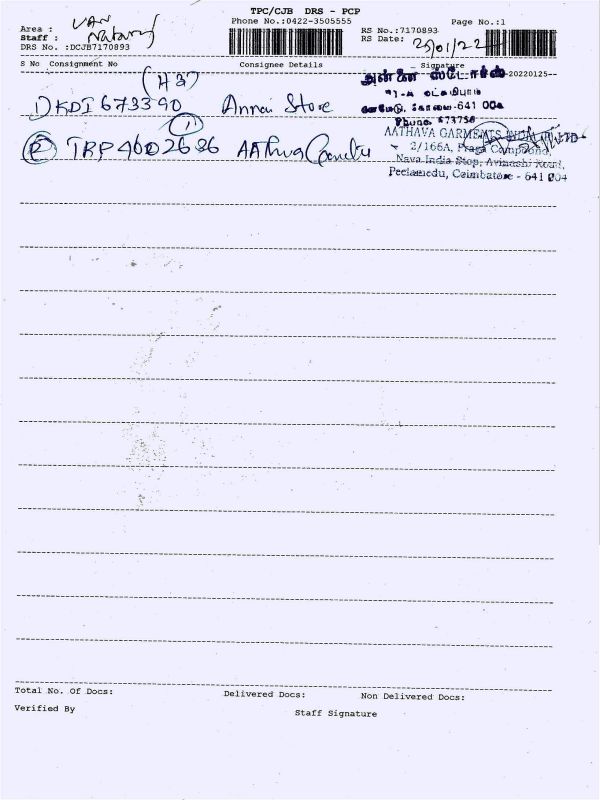 TPC/CJB DRS - PCP
Area : VAN
Phone No.:0422-3505555
Page No.:1
Staff :
RS No.:7170893
DRS No. :DCJB7170893
RS Date: 25/01/22
S No Consignment No Consignee Details Signature
-20220125--
அன்னை ஸ்டோர்ஸ்
1) KDI 673390 Annai Store
கோவை-641 004
673736
2 TRP 4602636
AATHAVA GARMENTS
2/166A, Praga Compound,
Nava India Stop, Avinashi Road,
Peelamedu, Coimbatore - 641 004
Total No. Of Docs: Delivered Docs: Non Delivered Docs:
Verified By
Staff Signature